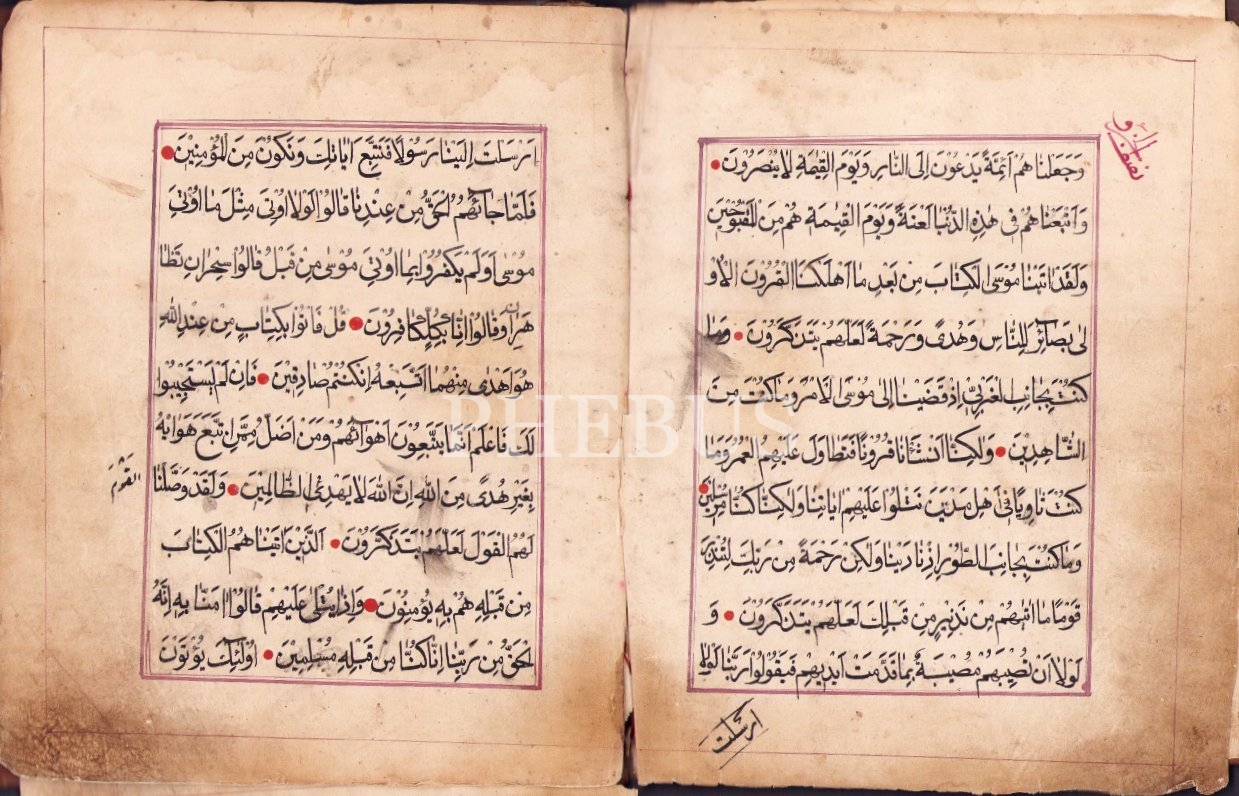 نصف جزو
وَجَعَلْنَا هُمْ اَئِمَّةً يَدْعُوْنَ اِلَى النَّارِ وَيَوْمَ الْقِيٰمَةِ لَا يُنْصَرُوْنَ
وَاَتْبَعْنَا هُمْ فِى هٰذِهِ الدُّنْيَا لَعْنَةً وَيَوْمَ الْقِيٰمَةِ هُمْ مِنَ الْمَقْبُوْحِيْنَ
وَلَقَدْ اٰتَيْنَا مُوْسَى الْكِتَابَ مِنْ بَعْدِ مَا اَهْلَكْنَا الْقُرُوْنَ الْاُوْ
لٰى بَصَآئِرَ لِلنَّاسِ وَهُدًى وَرَحْمَةً لَعَلَّهُمْ يَتَذَكَّرُوْنَ وَمَا
كُنْتَ بِجَانِبِ الْغَرْبِيِّ اِذْ قَضَيْنَا اِلٰى مُوْسَى الْاَمْرَ وَمَا كُنْتَ مِنَ
الشَّاهِدِيْنَ وَلٰكِنَّا اَنْشَأْنَا قُرُوْنًا فَتَطَاوَلَ عَلَيْهِمُ الْعُمُرُ وَمَا
كُنْتَ ثَاوِيًا فِى اَهْلِ مَدْيَنَ تَتْلُوْا عَلَيْهِمْ اٰيَاتِنَا وَلٰكِنَّا كُنَّا مُرْسِلِيْنَ
وَمَا كُنْتَ بِجَانِبِ الطُّوْرِ اِذْ نَادَيْنَا وَلٰكِنْ رَحْمَةً مِنْ رَبِّكَ لِتُنْذِرَ
قَوْمًا مَا اَتٰيهُمْ مِنْ نَذِيْرٍ مِنْ قَبْلِكَ لَعَلَّهُمْ يَتَذَكَّرُوْنَ وَ
لَوْلَا اَنْ تُصِيْبَهُمْ مُصِيْبَةٌ بِمَا قَدَّمَتْ اَيْدِيْهِمْ فَيَقُوْلُوْا رَبَّنَا لَوْلَا
ارسلت
اَرْسَلْتَ اِلَيْنَا رَسُوْلًا فَنَتَّبِعَ اٰيَاتِكَ وَنَكُوْنَ مِنَ الْمُؤْمِنِيْنَ
فَلَمَّا جَآئَهُمُ الْحَقُّ مِنْ عِنْدِنَا قَالُوْا لَوْلَا اُوْتِىَ مِثْلَ مَا اُوْتِىَ
مُوْسٰى اَوَلَمْ يَكْفُرُوْا بِمَا اُوْتِىَ مُوْسٰى مِنْ قَبْلُ قَالُوْا سِحْرَانِ تَظَا
هَرَا وَقَالُوْا اِنَّا بِكُلٍّ كَافِرُوْنَ قُلْ فَأْتُوْا بِكِتَابٍ مِنْ عِنْدِ اللهِ
هُوَ اَهْدٰى مِنْهُمَا اَتَّبِعْهُ اِنْ كُنْتُمْ صَادِقِيْنَ فَاِنْ لَمْ يَسْتَجِيْبُوْا
لَكَ فَاعْلَمْ اَنَّمَا يَتَّبِعُوْنَ اَهْوَآئَهُمْ وَمَنْ اَضَلُّ مِمَّنِ اتَّبَعَ هَوَاهُ
بِغَيْرِ هُدًى مِنَ اللهِ اِنَّ اللهَ لَا يَهْدِى الظَّالِمِيْنَ وَلَقَدْ وَصَّلْنَا
القوم
لَهُمُ الْقَوْلَ لَعَلَّهُمْ يَتَذَكَّرُوْنَ اَلَّذِيْنَ اٰتَيْنَاهُمُ الْكِتَابَ
مِنْ قَبْلِهِ هُمْ بِهِ يُؤْمِنُوْنَ وَاِذَا يُتْلٰى عَلَيْهِمْ قَالُوْا اٰمَنَّا بِهِ اِنَّهُ
الْحَقُّ مِنْ رَبِّنَا اِنَّا كُنَّا مِنْ قَبْلِهِ مُسْلِمِيْنَ اُوْلٰئِكَ يُؤْتَوْنَ
PHEBUS